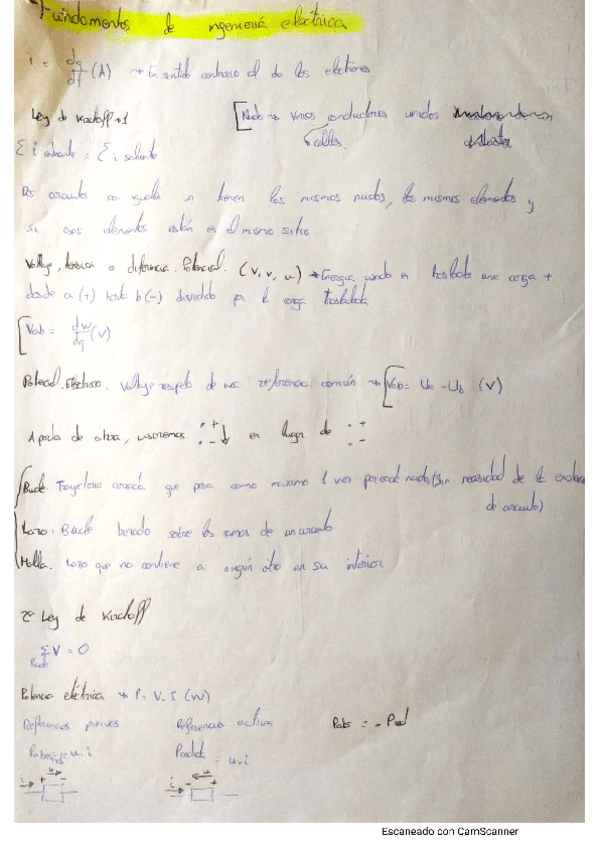 Fundamentos de ingeniería eléctrica
i = dq/dt (A) → En sentido contrario al de los electrones
Ley de Kirchoff 1 [Nudo → Varios conductores unidos
cables
Σ i entrante = Σ i saliente
Dos circuitos son iguales si tienen los mismos nudos, los mismos elementos y
si esos elementos están en el mismo sitio
Voltaje, tensión o diferencia. Potencial. (V, v, u) → Energía usada en trasladar una carga +
desde a (+) hasta b (-) dividido por la carga trasladada
[Vab = dw/dq (V)
Potencial. Eléctrico. Voltaje respecto de una referencia común → [Vab = Ua - Ub (V)
A partir de ahora, usaremos + - ↓ en lugar de + -
Bucle Trayectoria cerrada que pasa como máximo 1 vez por cada nudo (Sin necesidad de la
de circuito)
Lazo. Bucle cerrado sobre los ramas de un circuito
Malla. Lazo que no contiene a ningún otro en su interior
2ª Ley de Kirchoff
Σ V = 0
Bucle
Potencia eléctrica → P = V. I (W)
Referencias pasivas Referencia activa Pabs = - Pced
Pabsorbida = u.i Pcedida = u.i
i + u - i - u +
Escaneado con CamScanner